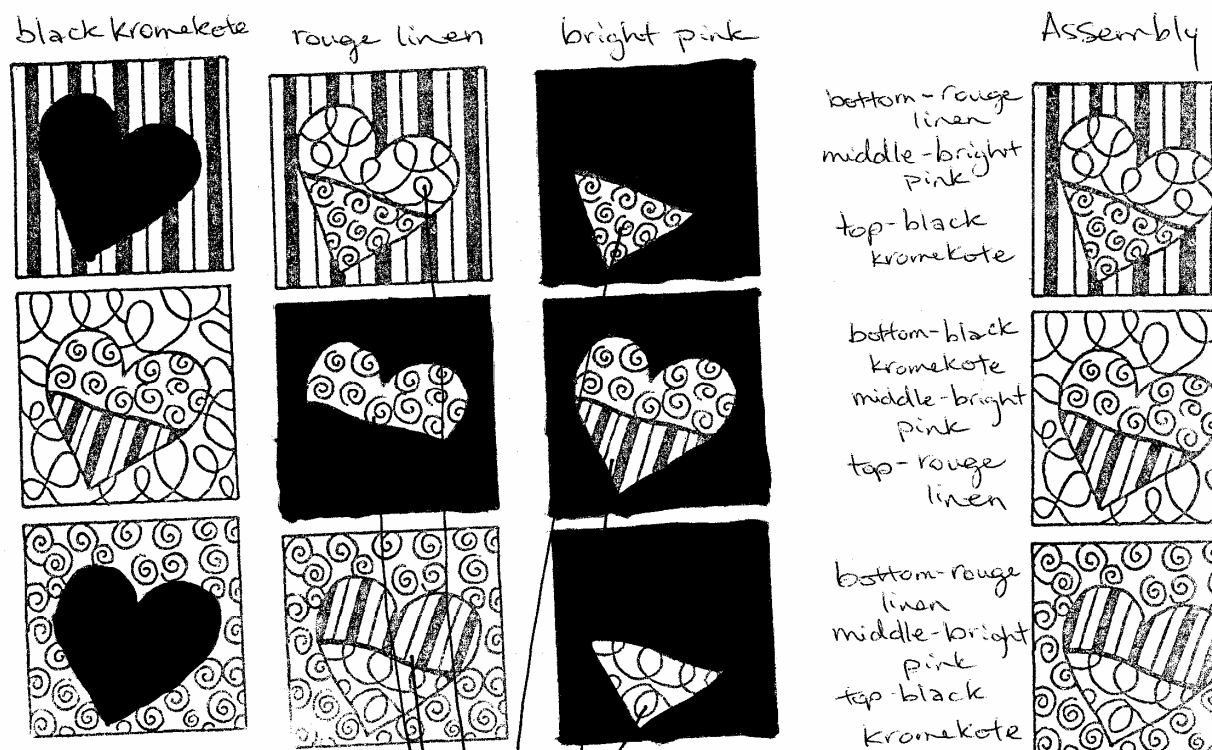 black kromekote
rouge linen
bright pink
Assembly
bottom-rouge
linen
middle-bright
pink
top-black
kromekote
bottom-black
kromekote
middle-bright
pink
top-rouge
linen
bottom-rouge
linen
middle-bright
pink
top-black
kromekote